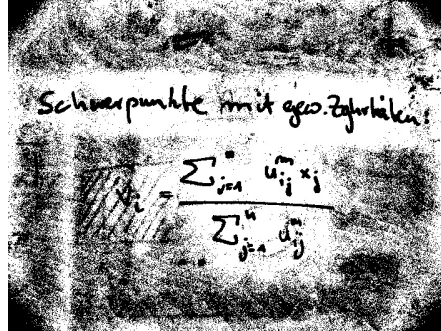 Schwerpunkte mit gew. Zugehörigkeiten:
v_i = \frac{\sum_{j=1}^{n} u_{ij}^{m} x_j}{\sum_{j=1}^{n} u_{ij}^{m}}